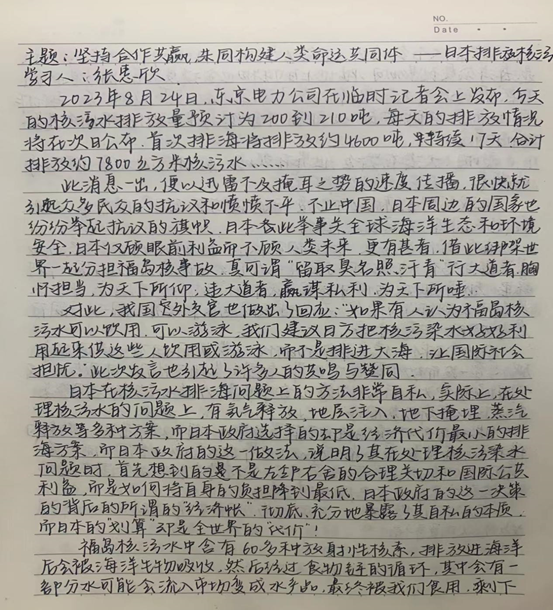 NO.
Date
主题：坚持合作共赢，共同构建人类命运共同体——日本排放核污
学习人：张恩欣
2023年8月24日，东京电力公司在临时记者会上发布，今天
的核污水排放量预计为200到210吨，每天的排放情况
将在次日公布，首次排海将排放约4600吨，持续17天，合计
排放约7800立方米核污水……
此消息一出，便以迅雷不及掩耳之势的速度传播，很快就
引起众多民众的抗议和愤愤不平，不止中国，日本周边的国家也
纷纷举起抗议的旗帜，日本此举事关全球海洋生态和环境
安全，日本仅顾眼前利益而不顾人类未来，更有甚者，借此绑架世
界一起分担福岛核事故，真可谓“留取臭名照汗青”行大道者，胸
怀担当，为天下所仰，违大道者，赢谋私利，为天下所唾。
对此，我国定外交官也做出了回应：“如果有人认为福岛核
污水可以饮用，可以游泳，我们建议日方把核污染水好好利
用起来供这些人饮用或游泳，而不是排进大海，让国际社会
担忧。”此次发言也引起了许多人的共鸣与赞同.
日本在核污水排海问题上的方法非常自私，实际上，在处
理核污水的问题上，有氢气释放，地层注入，地下掩埋，蒸汽
释放等多种方案，而日本政府选择的却是经济代价最小的排
海方案，而日本政府的这一做法，说明了其在处理核污染水
问题时，首先想到的是不是左邻右舍的合理关切和国际公共
利益，而是如何将自身的负担降到最低，日本政府的这一决策
的背后的所谓的“经济帐”，彻底，充分地暴露了其自私的本质，
而日本的“划算”却是全世界的“代价”！
福岛核污水中含有60多种放射性核素，排放进海洋
后会被海洋生物吸收，然后经过食物链的循环，其中会有一
部分水可能会流入市场变成水产品，最终被我们食用，剩下